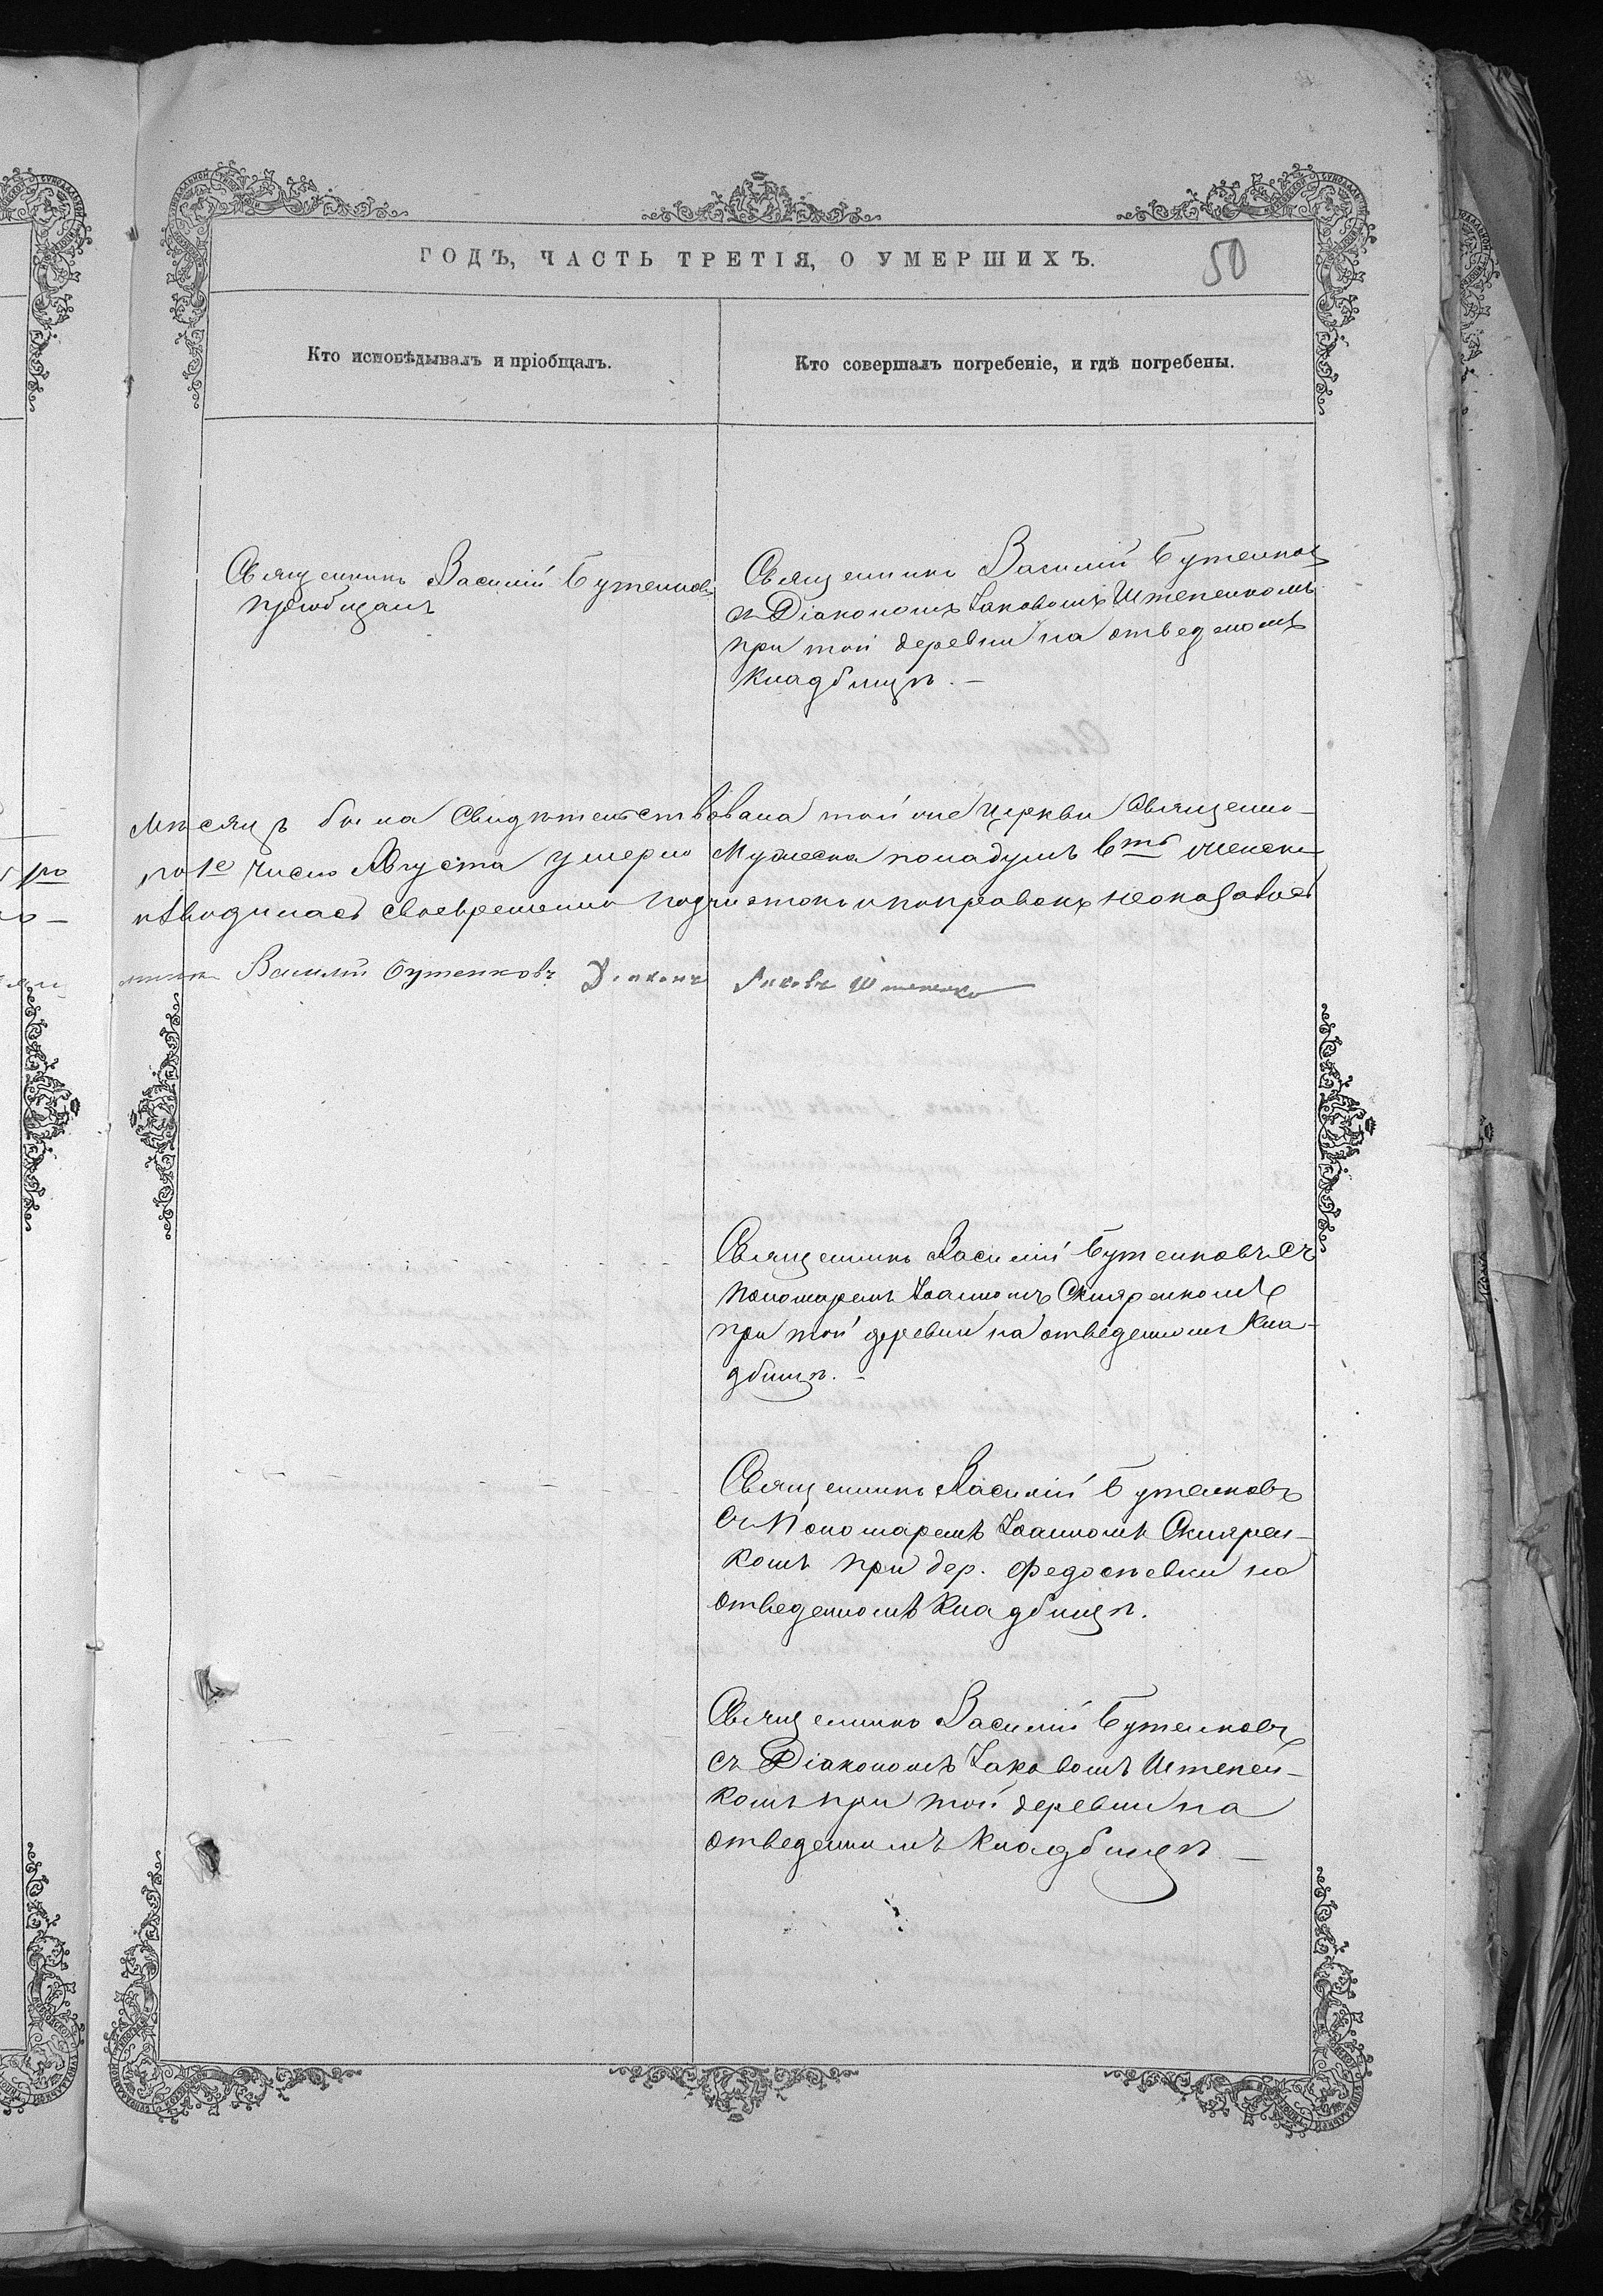 ГОДЪ, ЧАСТЬ ТРЕТІЯ, О УМЕРШИХЪ.
50
Кто исповѣдывалъ и пріобщалъ.
Кто совершалъ погребеніе, и гдѣ погребены.
Священникъ Василій Бутенковъ
пріобщалъ
Священникъ Василій Бутенковъ
съ Діакономъ Іаковомъ Штепенкомъ
при той деревни на отведеномъ
кладбищѣ. —
Мѣсяцъ была свидѣтельствована той же церкви священно-
по 1е число Августа умерло мужеска пола душъ 6ть женска
водилась своевременно подчистокъ и поправокъ неоказалось
Василій Бутенковъ Діаконъ Яковъ Штепенко
Священникъ Василій Бутенковъ съ
Пономаремъ Іоанномъ Скляренкомъ
при той деревни на отведенномъ кла-
дбищѣ. —
Священникъ Василій Бутенковъ
съ Пономаремъ Іоанномъ Скларен-
комъ при дер. Федосѣевки на
отведенномъ кладбищѣ.
Священникъ Василій Бутенковъ
съ Діакономъ Іаковомъ Штепен-
комъ при той деревни на
отведенномъ кладбищѣ —